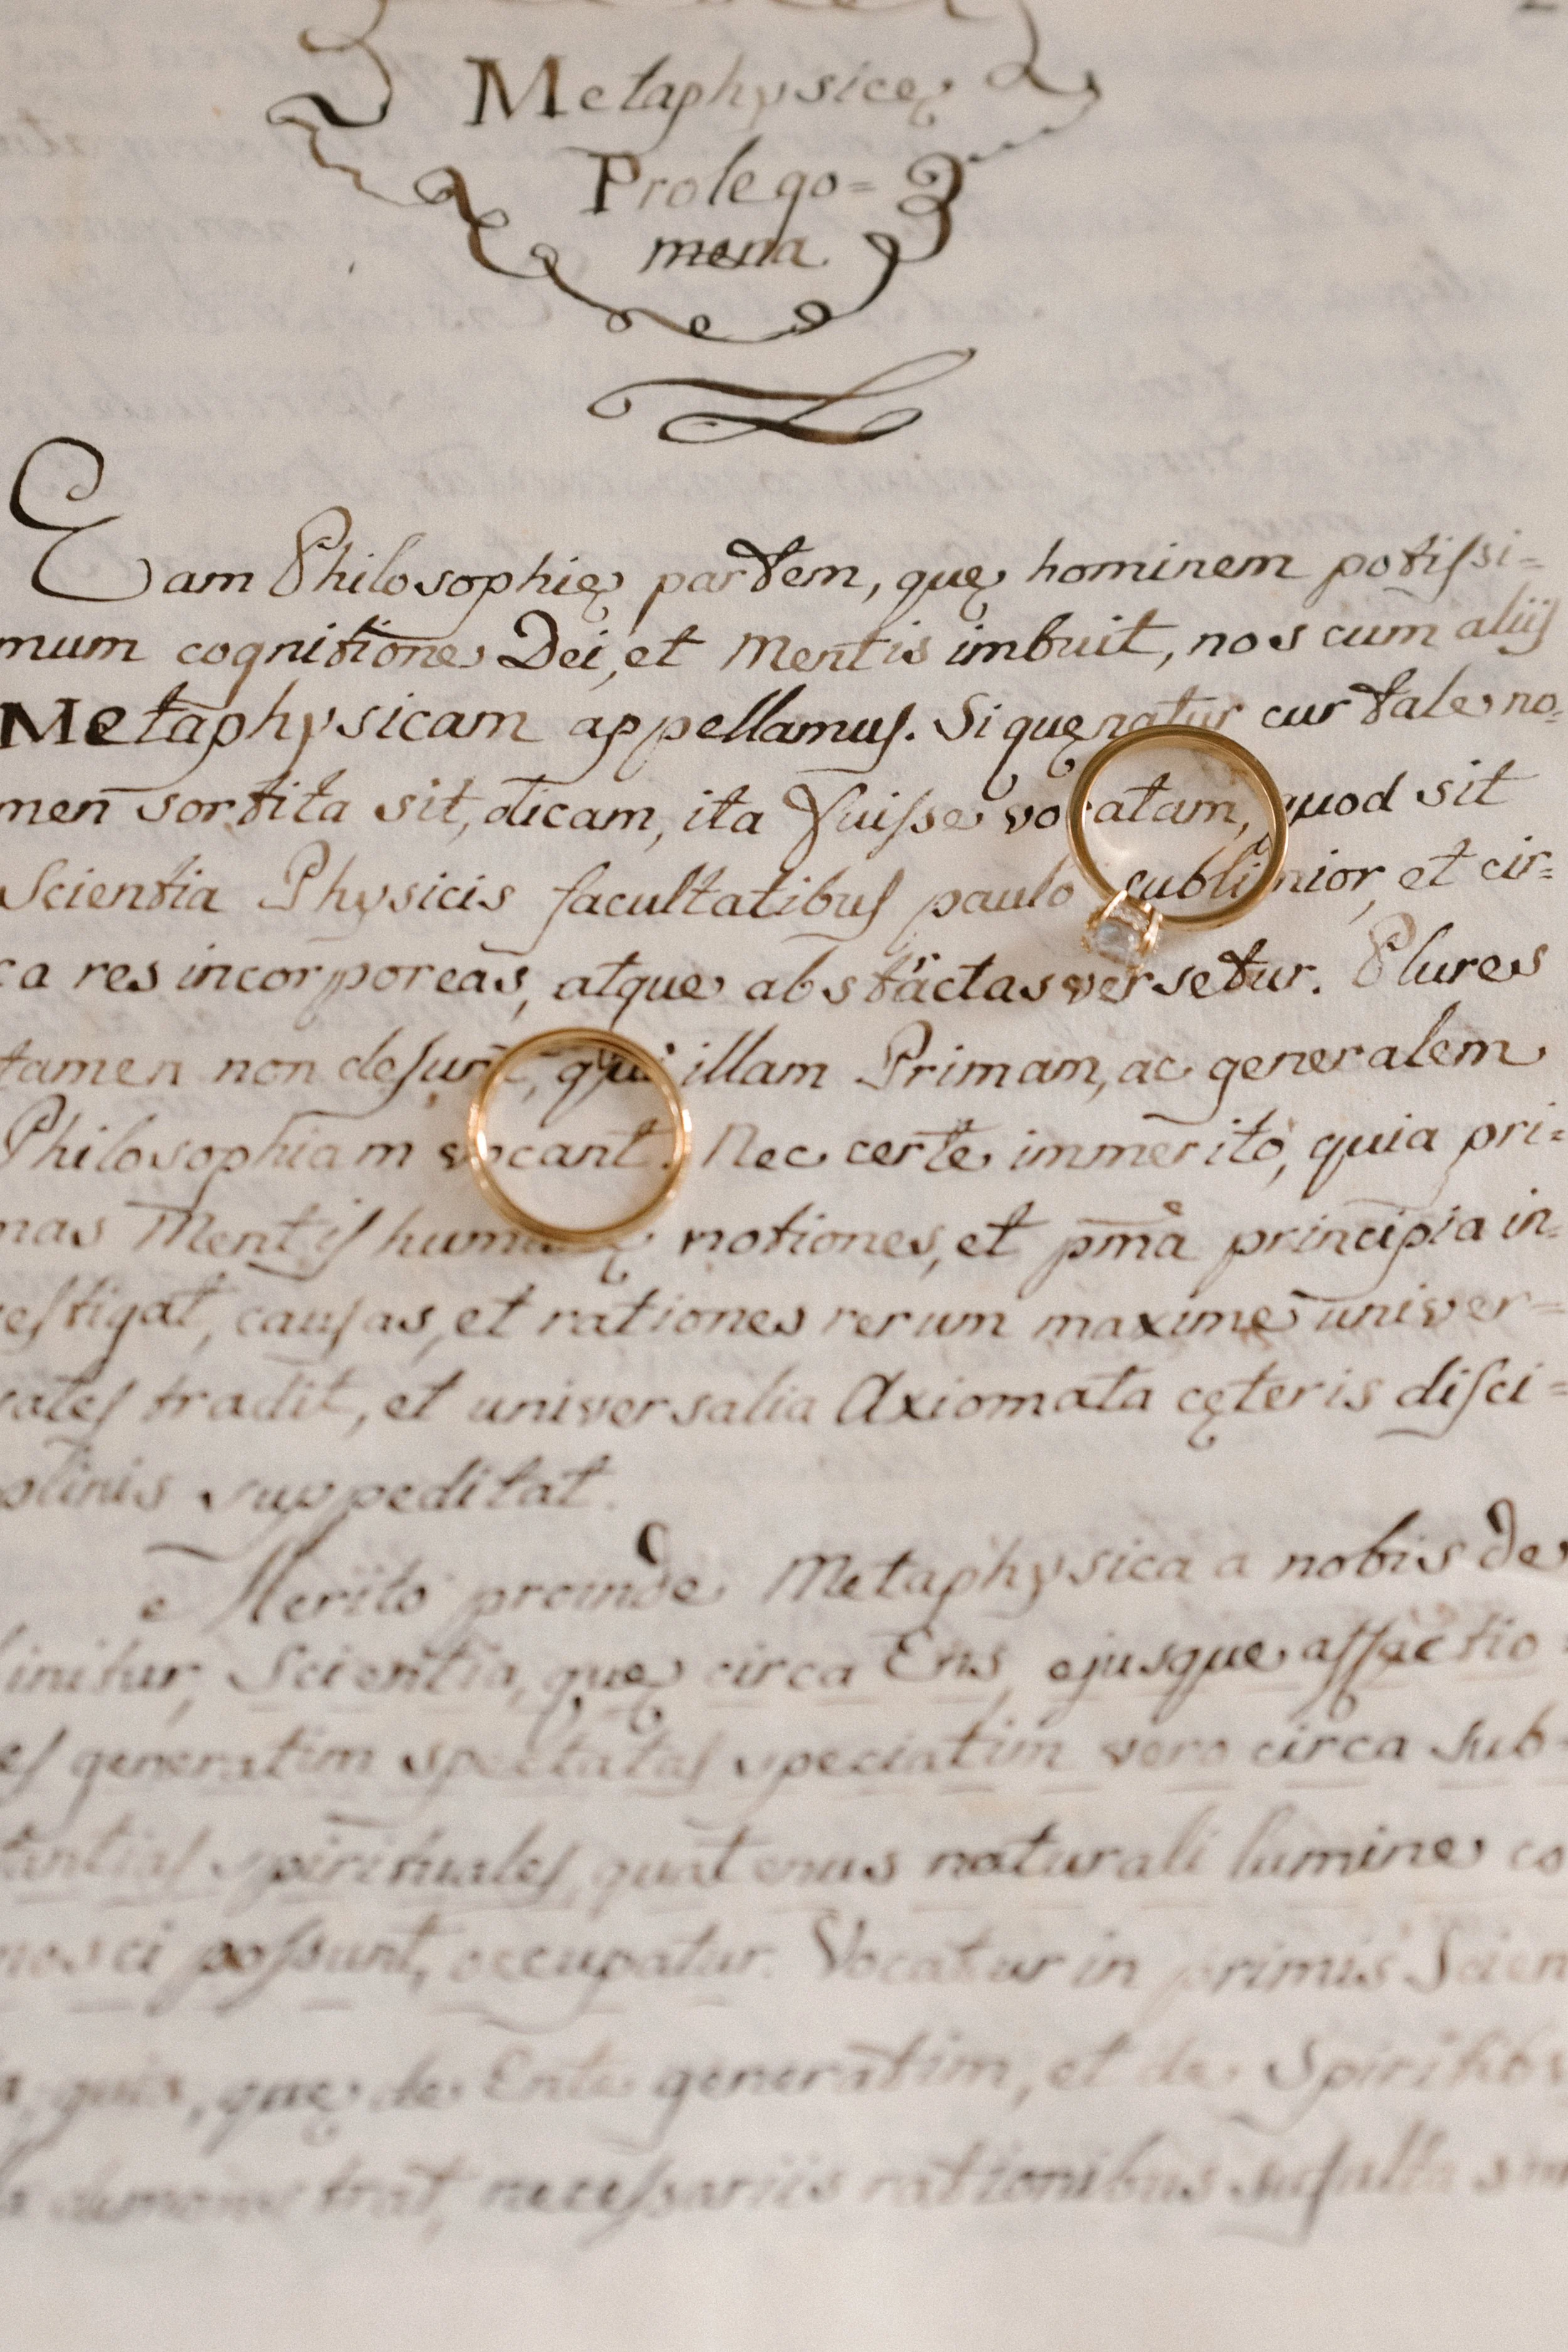 Metaphysicę
Prolego=
mena.
Eam Philosophię partem, quę hominem potiſsi=
mum cognitione Dei, et Mentis imbuit, nos cum aliiſ
Metaphysicam appellamuſ. Si quęratur cur tale no=
men sortita sit, dicam, ita fuiſse vocatam, quod sit
Scientia Physicis facultatibuſ paulo sublimior, et cir=
ca res incorporeas, atque abstractas versetur. Plures
tamen non deſunt, qui illam Primam, ac generalem
Philosophiam vocant. Nec certe immerito, quia pri=
mas Mentiſ humanę notiones, et pma principia in=
veſtigat, cauſas, et rationes rerum maxime univer=
saleſ tradit, et universalia Axiomata cęteris diſci=
plinis suppeditat.
Merito proinde Metaphysica a nobis de
finitur, Scientia, quę circa Ens, ejusque affectio
eſ generatim spectataſ speciatim vero circa sub=
tantiaſ spirituales, quatenus naturali lumine co
nosci poſsunt, occupatur. Vocatur in primis Scien
quia, quę de Ente generatim, et de
neceſsariis rationibus